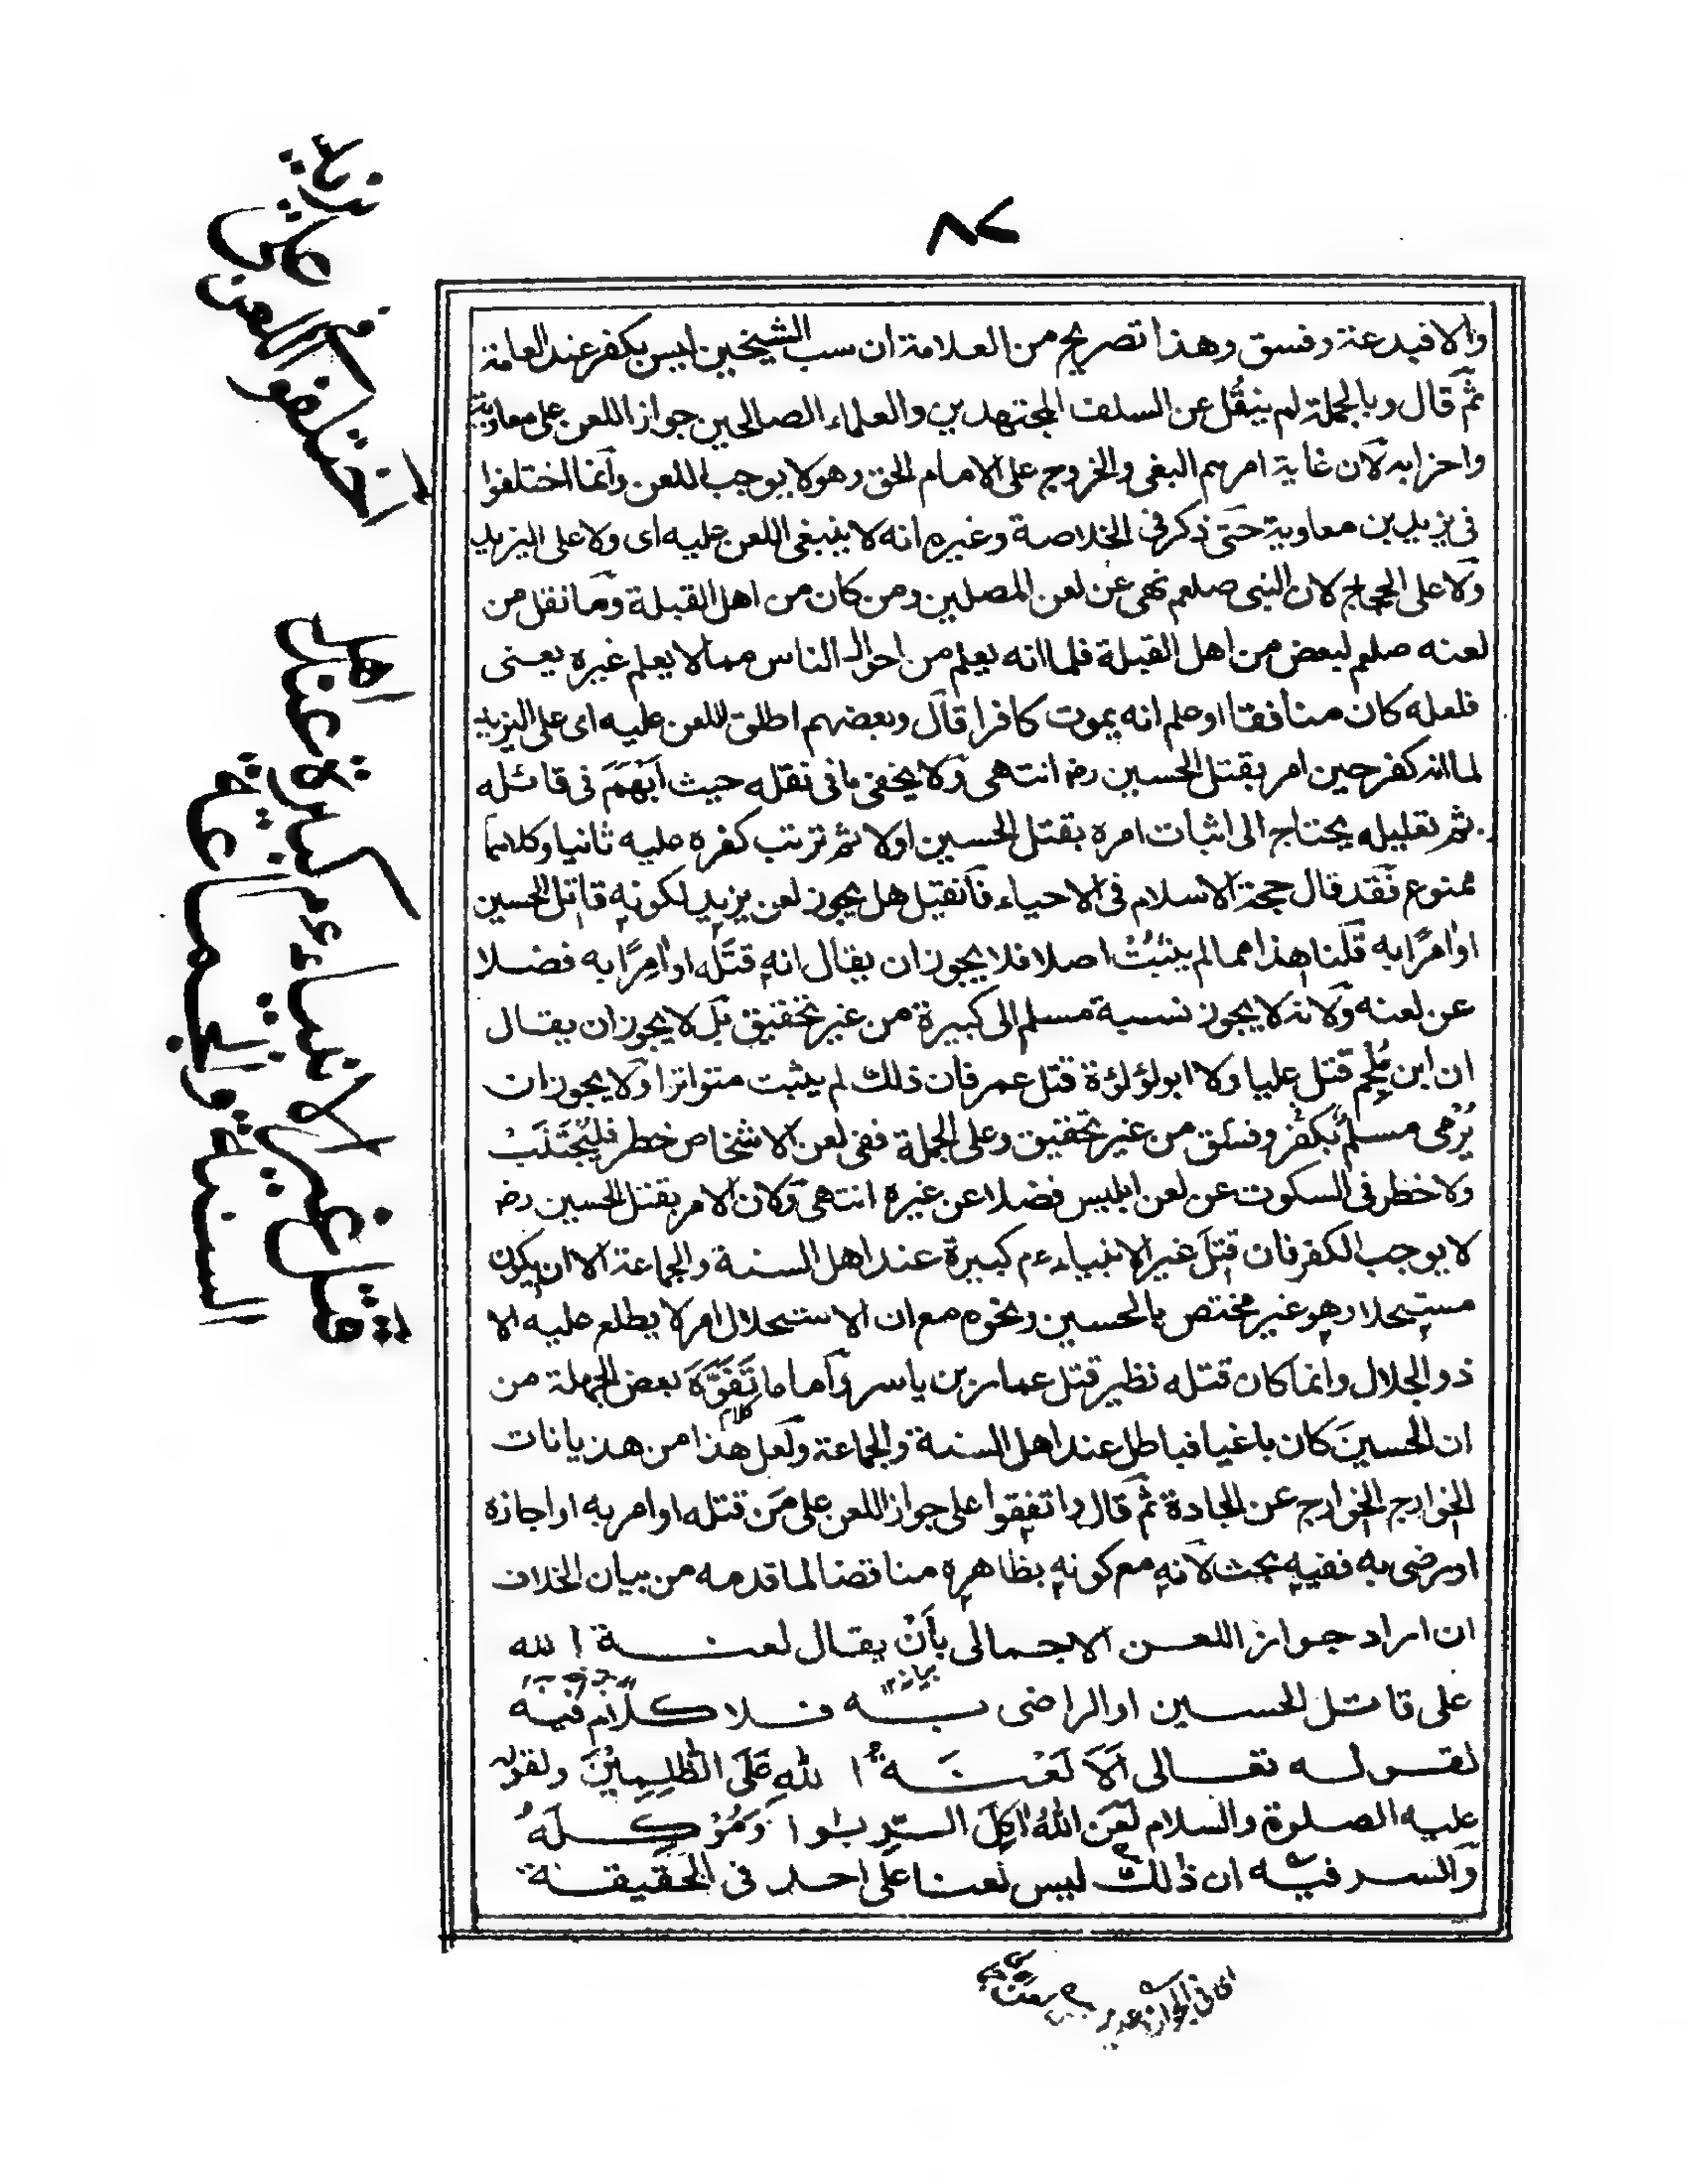 ٨٧
والا فبدعة وفسق وهذا تصريح من العلامة ان سب الشيخين ليس بكفر عند العامة
ثم قال وبالجملة لم ينقل عن السلف المجتهدين والعلماء الصالحين جواز اللعن على معاوية
واحزابه لان غاية امرهم البغى والخروج على الامام الحق وهو لا يوجب اللعن وانما اختلفوا
فى يزيد بن معاوية حتى ذكر فى الخلاصة وغيره انه لا ينبغى اللعن عليه اى ولا على اليزيد
ولا على الحجاج لان النبى صلعم نهى عن لعن المصلين ومن كان من اهل القبلة وما نقل من
لعنه صلعم لبعض من اهل القبلة فلما انه يعلم من احوال الناس مما لا يعلم غيره يعنى
فلعله كان منافقا او علم انه يموت كافرا قال وبعضهم اطلق اللعن عليه اى على اليزيد
لما انه كفر حين امر بقتل الحسين رضه انتهى ولا يخفى ما فى نقله حيث ابهم فى قائله
ثم تعليله يحتاج الى اثبات امره بقتل الحسين اولا ثم ترتب كفره عليه ثانيا وكلاهما
ممنوع فقد قال حجة الاسلام فى الاحياء فان قيل هل يجوز لعن يزيد لكونه قاتل الحسين
او امرًا به قلنا هذا مما لم يثبُتْ اصلا فلا يجوز ان يقال انه قتَلَه او امِرًا به فضلا
عن لعنه ولانه لا يجوز نسبة مسلم الى كبيرة من غير تحقيق بل لا يجوز ان يقال
ان ابن مُلجَم قتل عليا ولا ابو لؤلؤة قتل عمر فان ذلك لم يثبت متواترا ولا يجوز ان
يُرْمى مسلمٌ بكفر وفسق من غير تحقيق وعلى الجملة ففى لعن الاشخاص خطر فليُجْتَنَبْ
ولا خطر فى السكوت عن لعن ابليس فضلا عن غيره انتهى ولان الامر بقتل الحسين رضه
لا يوجب الكفر فان قتل غير الانبياء ءم كبيرة عند اهل السنة والجماعة الا ان يكون
مستحلا وهو غير مختص بالحسين ونحوه مع ان الاستحلال امر لا يطلع عليه الا
ذو الجلال وانما كان قتله نظير قتل عمار بن ياسر واما ما تَفَوَّهَ بعض الجهلة من
كلام
ان الحسينَ كان باغيا فباطل عند اهل السنة والجماعة ولعل هذا من هذيانات
الخوارج الخوارج عن الجادة ثم قال واتفقوا على جواز اللعن على مَن قتله او امر به او اجازه
او رضى به ففيه بحث لانه مع كونه بظاهره مناقضا لما قدمه من بيان الخلاف
ان اراد جواز اللعن الاجمالى بِاَنْ يقال لعنة الله
على قاتل الحسين او الراضى به فلا كلام فيه
لقوله تعالى اَلَا لَعْنَةُ اللهِ عَلَى الظّٰلِمِيْنَ ولقوله
عليه الصلوة والسلام لَعَنَ اللهُ اٰكِلَ الربٰوا وَمُوْكِلَهُ
والسر فيه ان ذلك ليس لعنا على احد فى الحقيقة
اختلفوا فى اللعن على يزيد
قتل غير الانبياء ءم كبيرة عند اهل
السنة والجماعة
اى فى الجواز